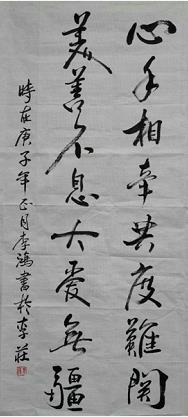 心手相牽共度難關
美善不息大愛無疆
時在庚子年正月李鴻書於李莊